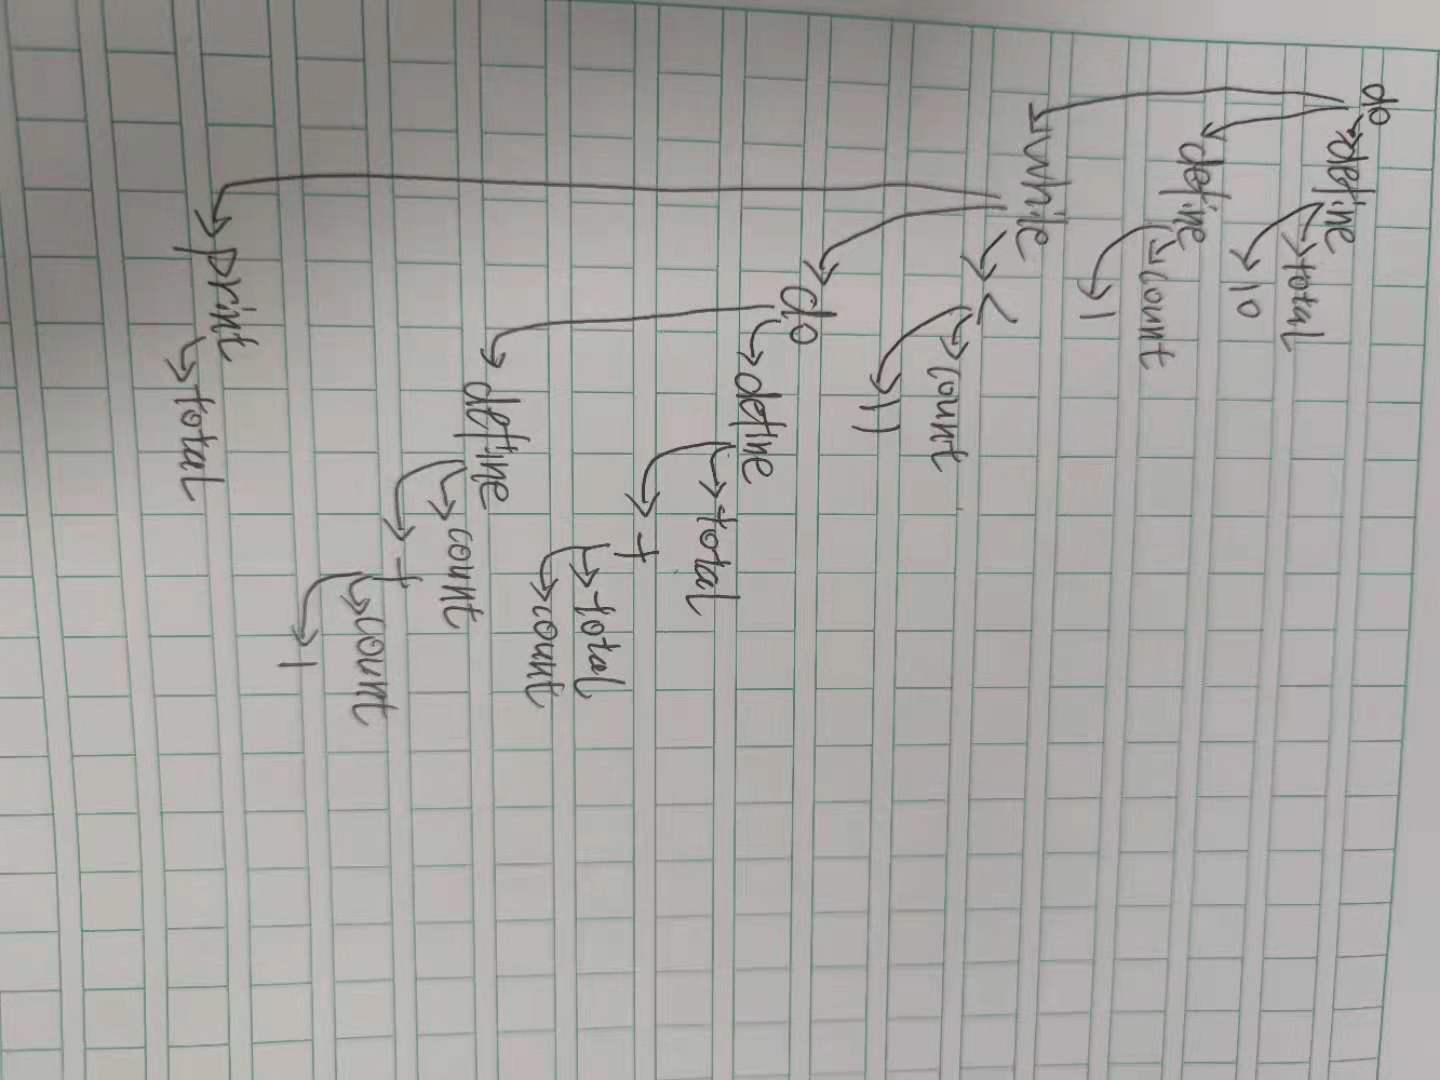 do
define
total
10
define
count
1
while
<
count
11
do
define
total
+
total
count
define
count
+
count
1
print
total